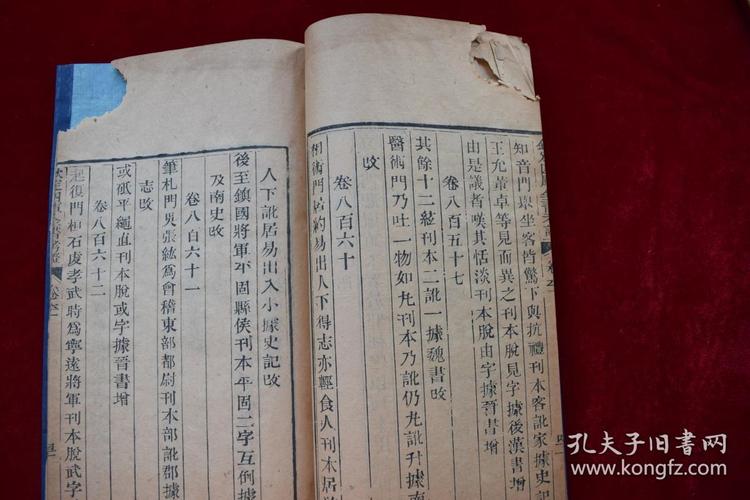 知音門眾坐客皆驚下與抗禮刊本客訛家據史
王允董卓等見而異之刊本脫見字據後漢書增
由是議者嘆其恬淡刊本脫由字據晉書增
卷八百五十七
其餘十二紘刊本二訛一據魏書改
醫術門乃吐一物如丸刊本乃訛仍丸訛升據南
改
卷八百六十
相術門居約易出人下得志亦輕食人刊本居
人下訛居易出入小據史記改
後至鎮國將軍平固縣侯刊本平固二字互倒據
及南史改
卷八百六十一
筆札門吳張紘為會稽東部都尉刊本部訛郡據
志改
或砥平繩直刊本脫或字據晉書增
卷八百六十二
起復門桓石虔孝武時為寧遠將軍刊本脫武字
欽定四庫全書考證
孔夫子旧书网
www.kongfz.com